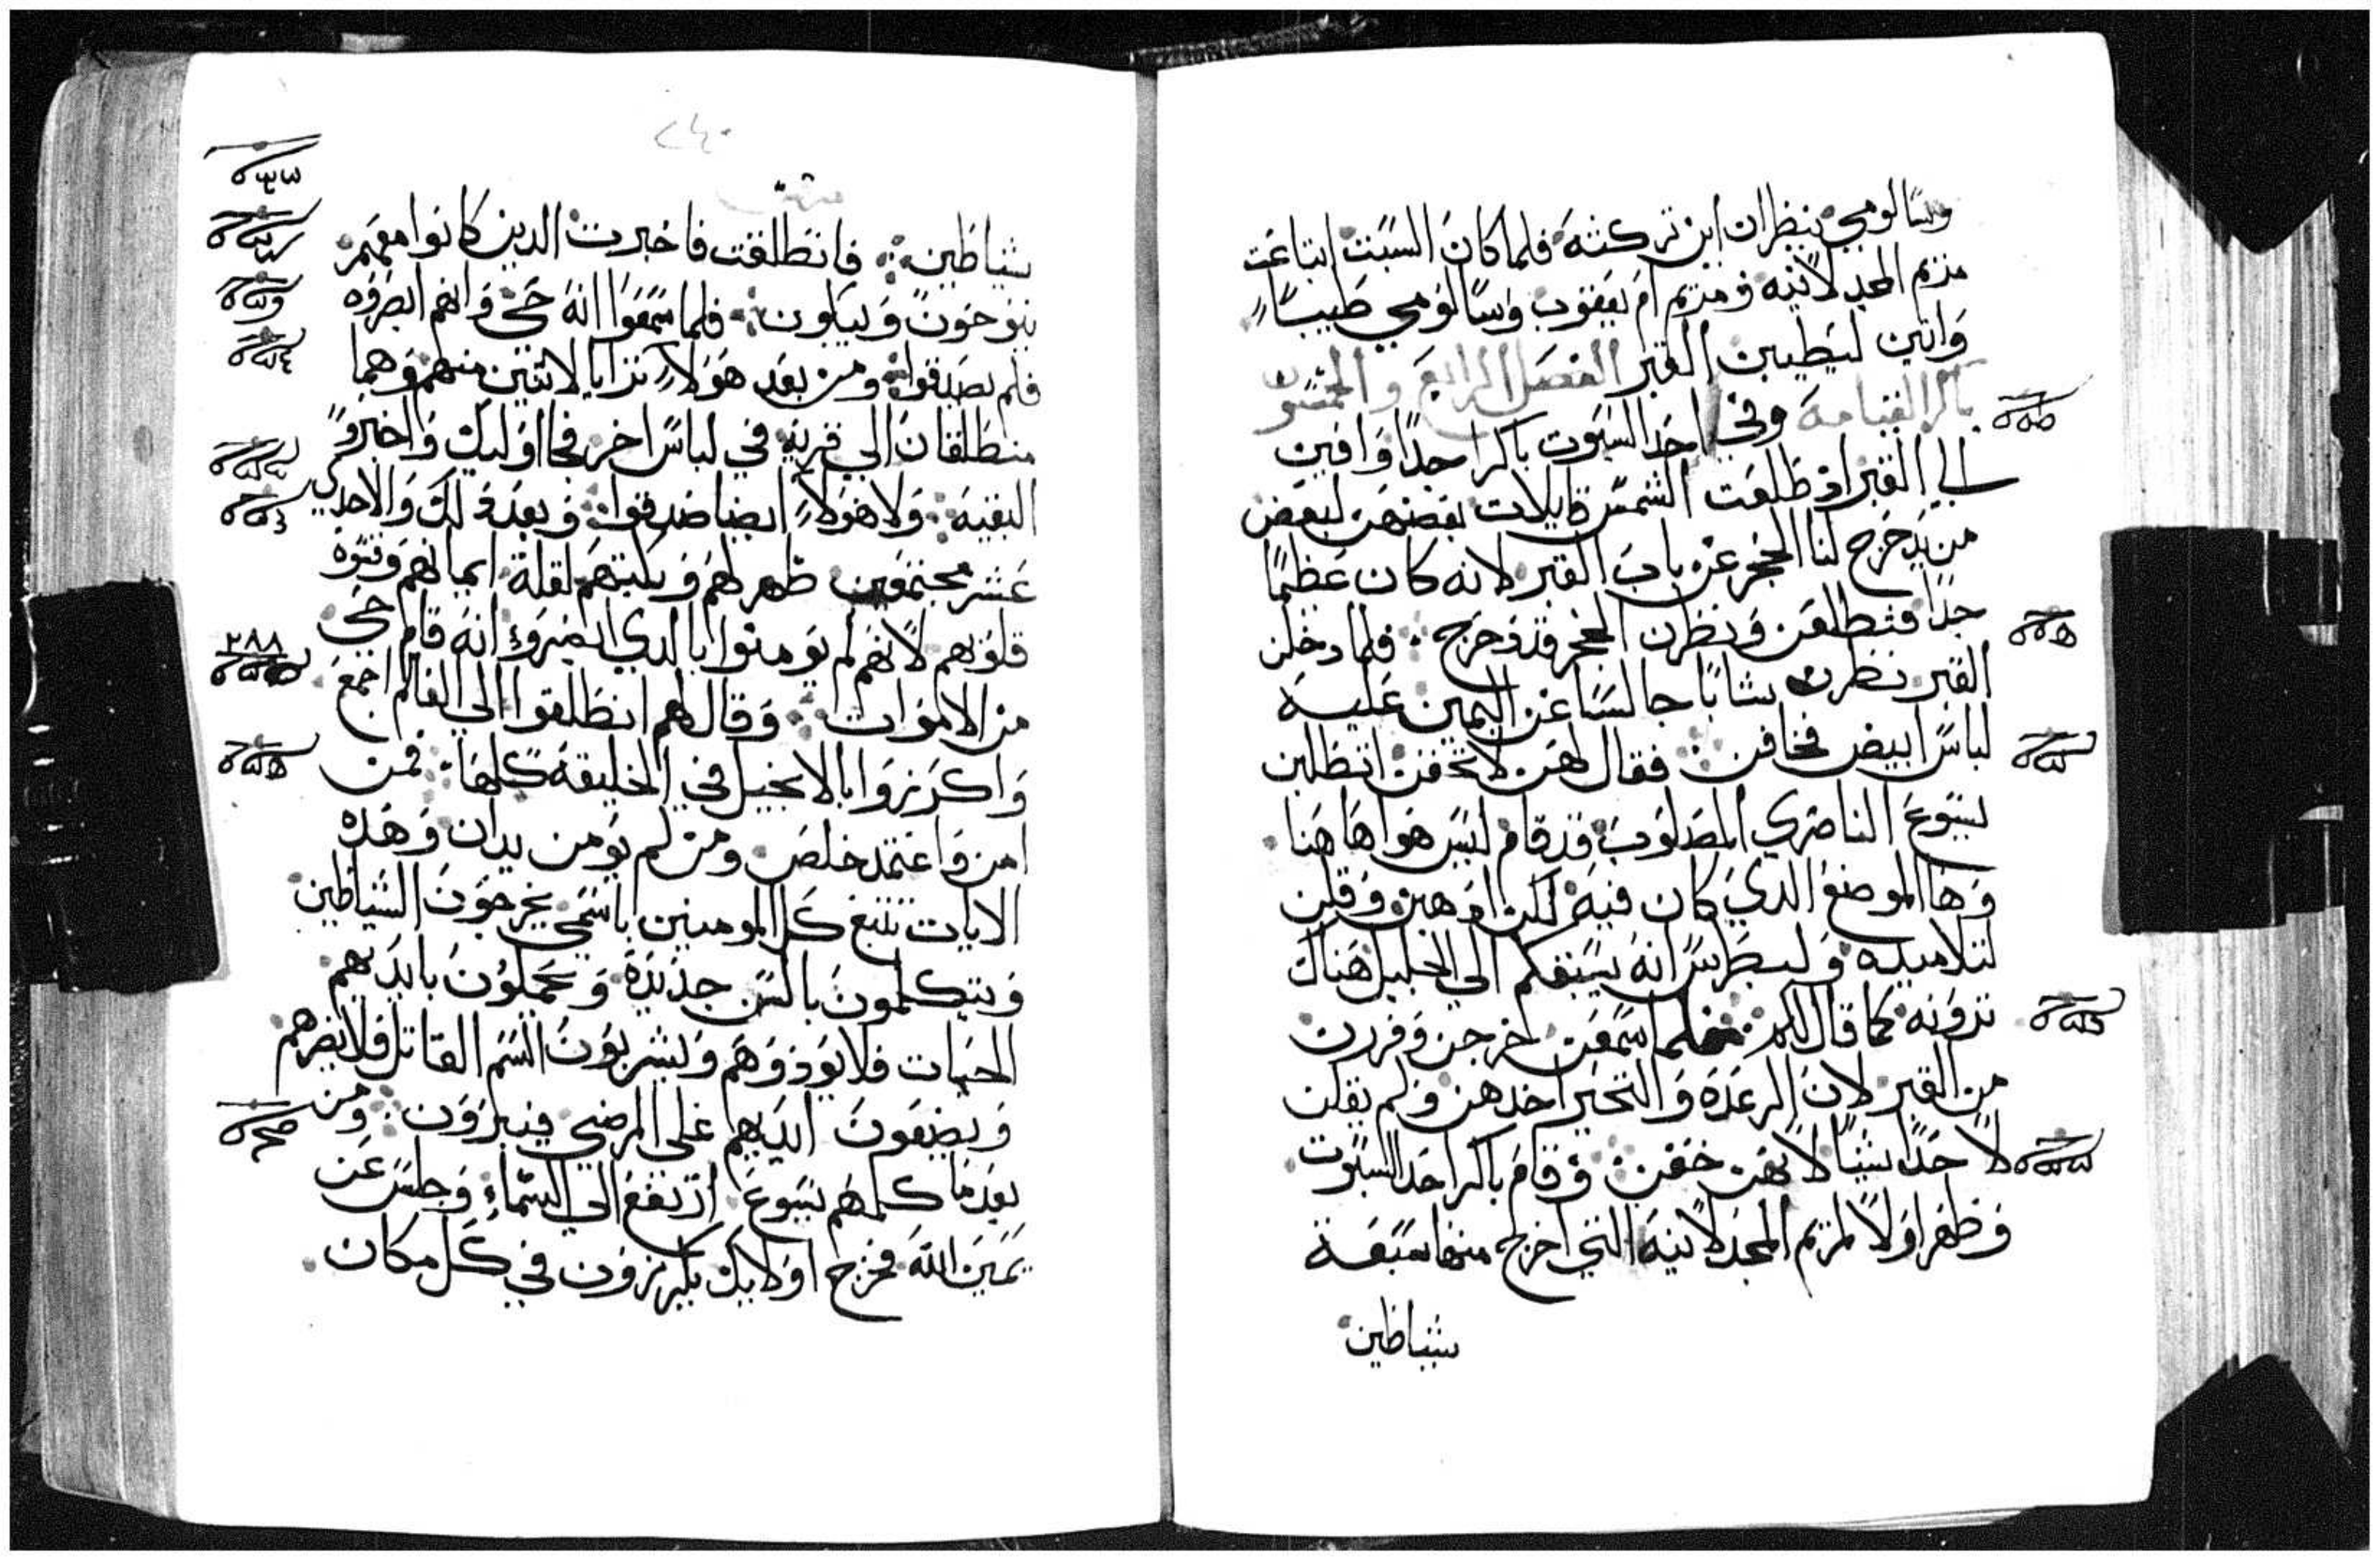 وسالومي ينظران اين تركته فلما كان السبت ابتاعت
مريم المجدلانيه ومريم ام يعقوب وسالومي طيبًا
واتين ليطيبن القبر الفصل الرابع والخمسون
باكر القيامة وفي احد السبوت باكرا جدًا وافين
الي القبر اذ طلعت الشمس قايلات بعضهن لبعض
من يدحرج لنا الحجر عن باب القبر لانه كان عظيمًا
جدًا فتطلعن ونظرن الحجر قد دحرج فلما دخلن
القبر نظرن شابًا جالسًا عن اليمين عليه
لباسًا ابيض فخافن فقال لهن لا تخفن اتطلبن
يسوع الناصري المصلوب قد قام ليس هوا هاهنا
وها الموضع الدي كان فيه لكن ادهبن وقلن
لتلاميده ولبطرس انه يسبقكم الي الجليل هناك
ترونه كما قال لكم فلما سمعن خرجن وفررن
من القبر لان الرعدة والتحير اخدهن ولم يقلن
لاحدًا شيئًا لانهن خفن وقام باكر احد السبوت
وظهر اولًا لمريم المجدلانيه التي اخرج منها سبعة
شياطين
٢٤٠
شياطين فانطلقت فاخبرت الدين كانوا معهم
ينوحون ويبكون فلما سمعوا انه حي وانهم ابصروه
فلم يصدقوا ومن بعد هولاء ترايا لاتنين منهم وهما
منطلقان الي قريه في لباس اخر فجا اوليك واخبروا
البقيه ولا هولاء ايضا صدقوا وبعد دلك والاحدي
عشر مجتمعين ظهر لهم وبكتهم لقلة ايمانهم وقسوة
قلوبهم لانهم لم يومنوا بالدي ابصروه انه قام حي
من الاموات وقال لهم انطلقوا الي العالم اجمع
واكرزوا بالانجيل في الخليقه كلها فمن
امن واعتمد خلص ومن لم يومن يدان وهده
الايات تتبع كل المومنين باسمي يخرجون الشياطين
ويتكلمون بالسن جديدة ويحملون بايديهم
الحيات فلا توذوهم ويشربون السم القاتل فلا يضرهم
ويضعون ايديهم علي المرضي فيبرون ومن
بعد ما كلمهم يسوع ارتفع الي السماء وجلس عن
يمين الله فخرج اولايك يكرزون في كل مكان
٢٨٨